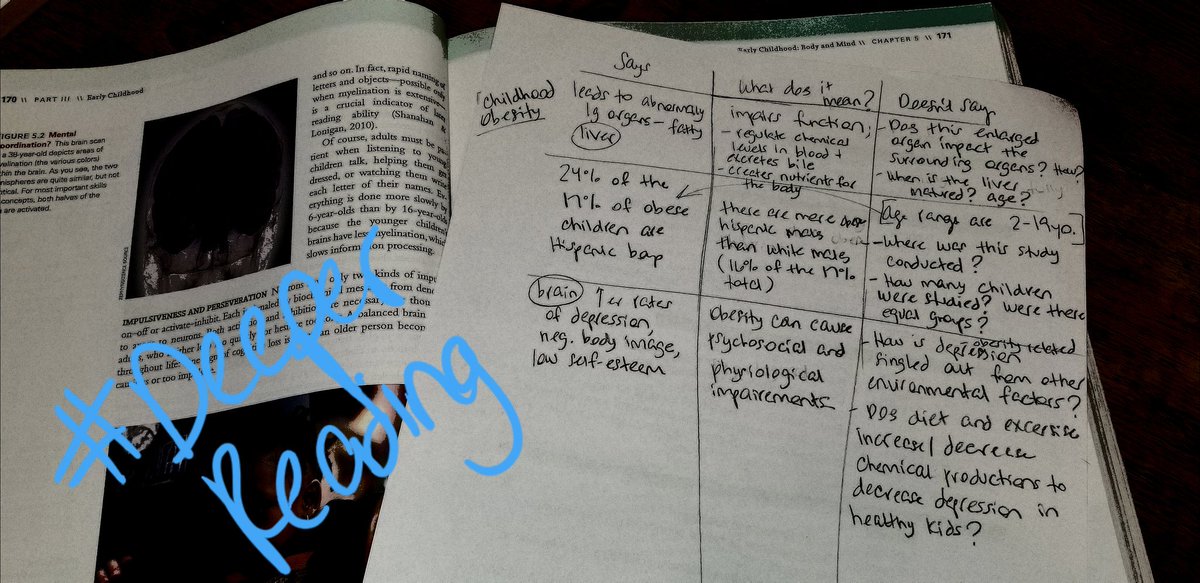 170 \\ PART III \\ Early Childhood
FIGURE 5.2 Mental
Coordination? This brain scan
a 38-year-old depicts areas of
myelination (the various colors)
within the brain. As you see, the two
hemispheres are quite similar, but not
identical. For most important skills
concepts, both halves of the
are activated.
and so on. In fact, rapid naming of
letters and objects—possible only
when myelination is extensive—
is a crucial indicator of later
reading ability (Shanahan &
Lonigan, 2010).
Of course, adults must be pa-
tient when listening to young
children talk, helping them get
dressed, or watching them write
each letter of their names. Ev-
erything is done more slowly by
6-year-olds than by 16-year-olds
because the younger children's
brains have less myelination, which
slows information processing.
IMPULSIVENESS AND PERSEVERATION
only two kinds of
on–off or activate–inhibit. Each
biochemical
from
to neurons. Both
and
are necessary
balanced brain
throughout life
loss is
an older person
or too
#Deeper
Reading
Early Childhood: Body and Mind \\ CHAPTER 5 \\ 171
Says
What dos it
mean?
Doesn't say
childhood
obesity
leads to abnormaly
lg organs - fatty
liver
impairs function;
- regulate chemical
levels in blood +
excretes bile
- creates nutrients for
the body
- Dos this enlarged
organ impact the
surrounding organs? How?
- When is the liver
matured? age?
24% of the
17% of obese
children are
Hispanic boys
there are more
hispanic males
than white males
(16% of the 17%
total)
[age range are 2-19yo.]
- Where was this study
conducted?
- How many children
were studied? were there
equal groups?
brain
↑er rates
of depression,
neg. body image,
low self-esteem
Obesity can cause
psychosocial and
phyriological
impairements
- How is obesity related
depression
singled out from other
environmental factors?
- Dos diet and excersise
increase/decrease
chemical productions to
decrease depression in
healthy kids?